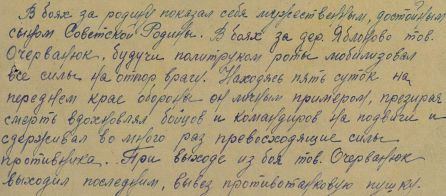 В боях за родину показал себя мужественным, достойным
сыном Советской Родины. В боях за дер. Яблоново тов.
Очерванюк, будучи политруком роты мобилизовал
все силы на отпор врагу. Находясь пять суток на
переднем крае обороны он личным примером, презирая
смерть вдохновлял бойцов и командиров на подвиги и
сдерживал во много раз превосходящие силы
противника. При выходе из боя тов. Очерванюк
выходил последним, вывез противотанковую пушку.